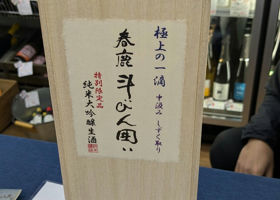 極上の一滴
中汲み しずく取り
春鹿 斗びん囲い
特別限定品
純米大吟醸生酒